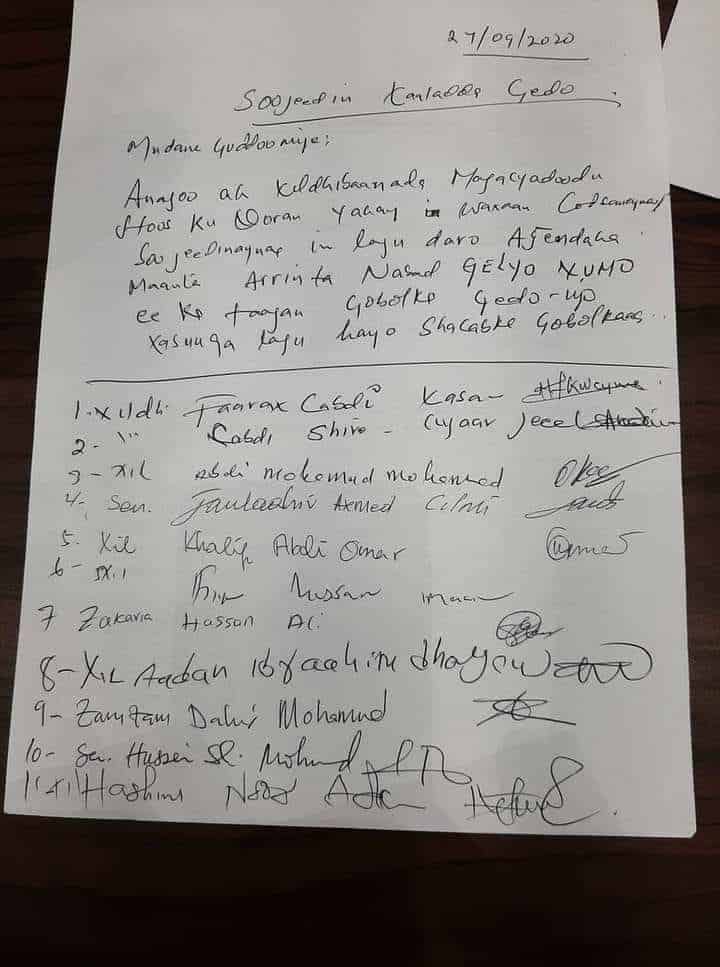 27/09/2020
Soojeedin Xaaladda Gedo.
Mudane Guddoomiye;
Anagoo ah Xildhibaanada Magacyadoodu
Hoos Ku Qoran yahay in waxaan Codsanaynaa
Soo jeedinaynaa in lagu daro Ajendaha
Maanta Arrinta Nabad GELYO XUMO
ee Ka taagan Gobolka Gedo - iyo
Xasuuqa lagu hayo Shacabka Gobolkaas..
1-Xildh: Faarax Cabdi Xasan
2- "" Cabdi Shire - Ciyaar Jecel
3- Xil Abdi Mohamud Mohamed
4- Sen. Axmed Cilmi
5. Xil Khalif Abdi Omar
6- Xil
7 Zakaria Hassan Ali
8- XIL Aadan Ibraahim dhayow
9- Zamzam Dahir Mohamud
10- Sen. Hussein Sh. Mohmud
11 Xil Hashim